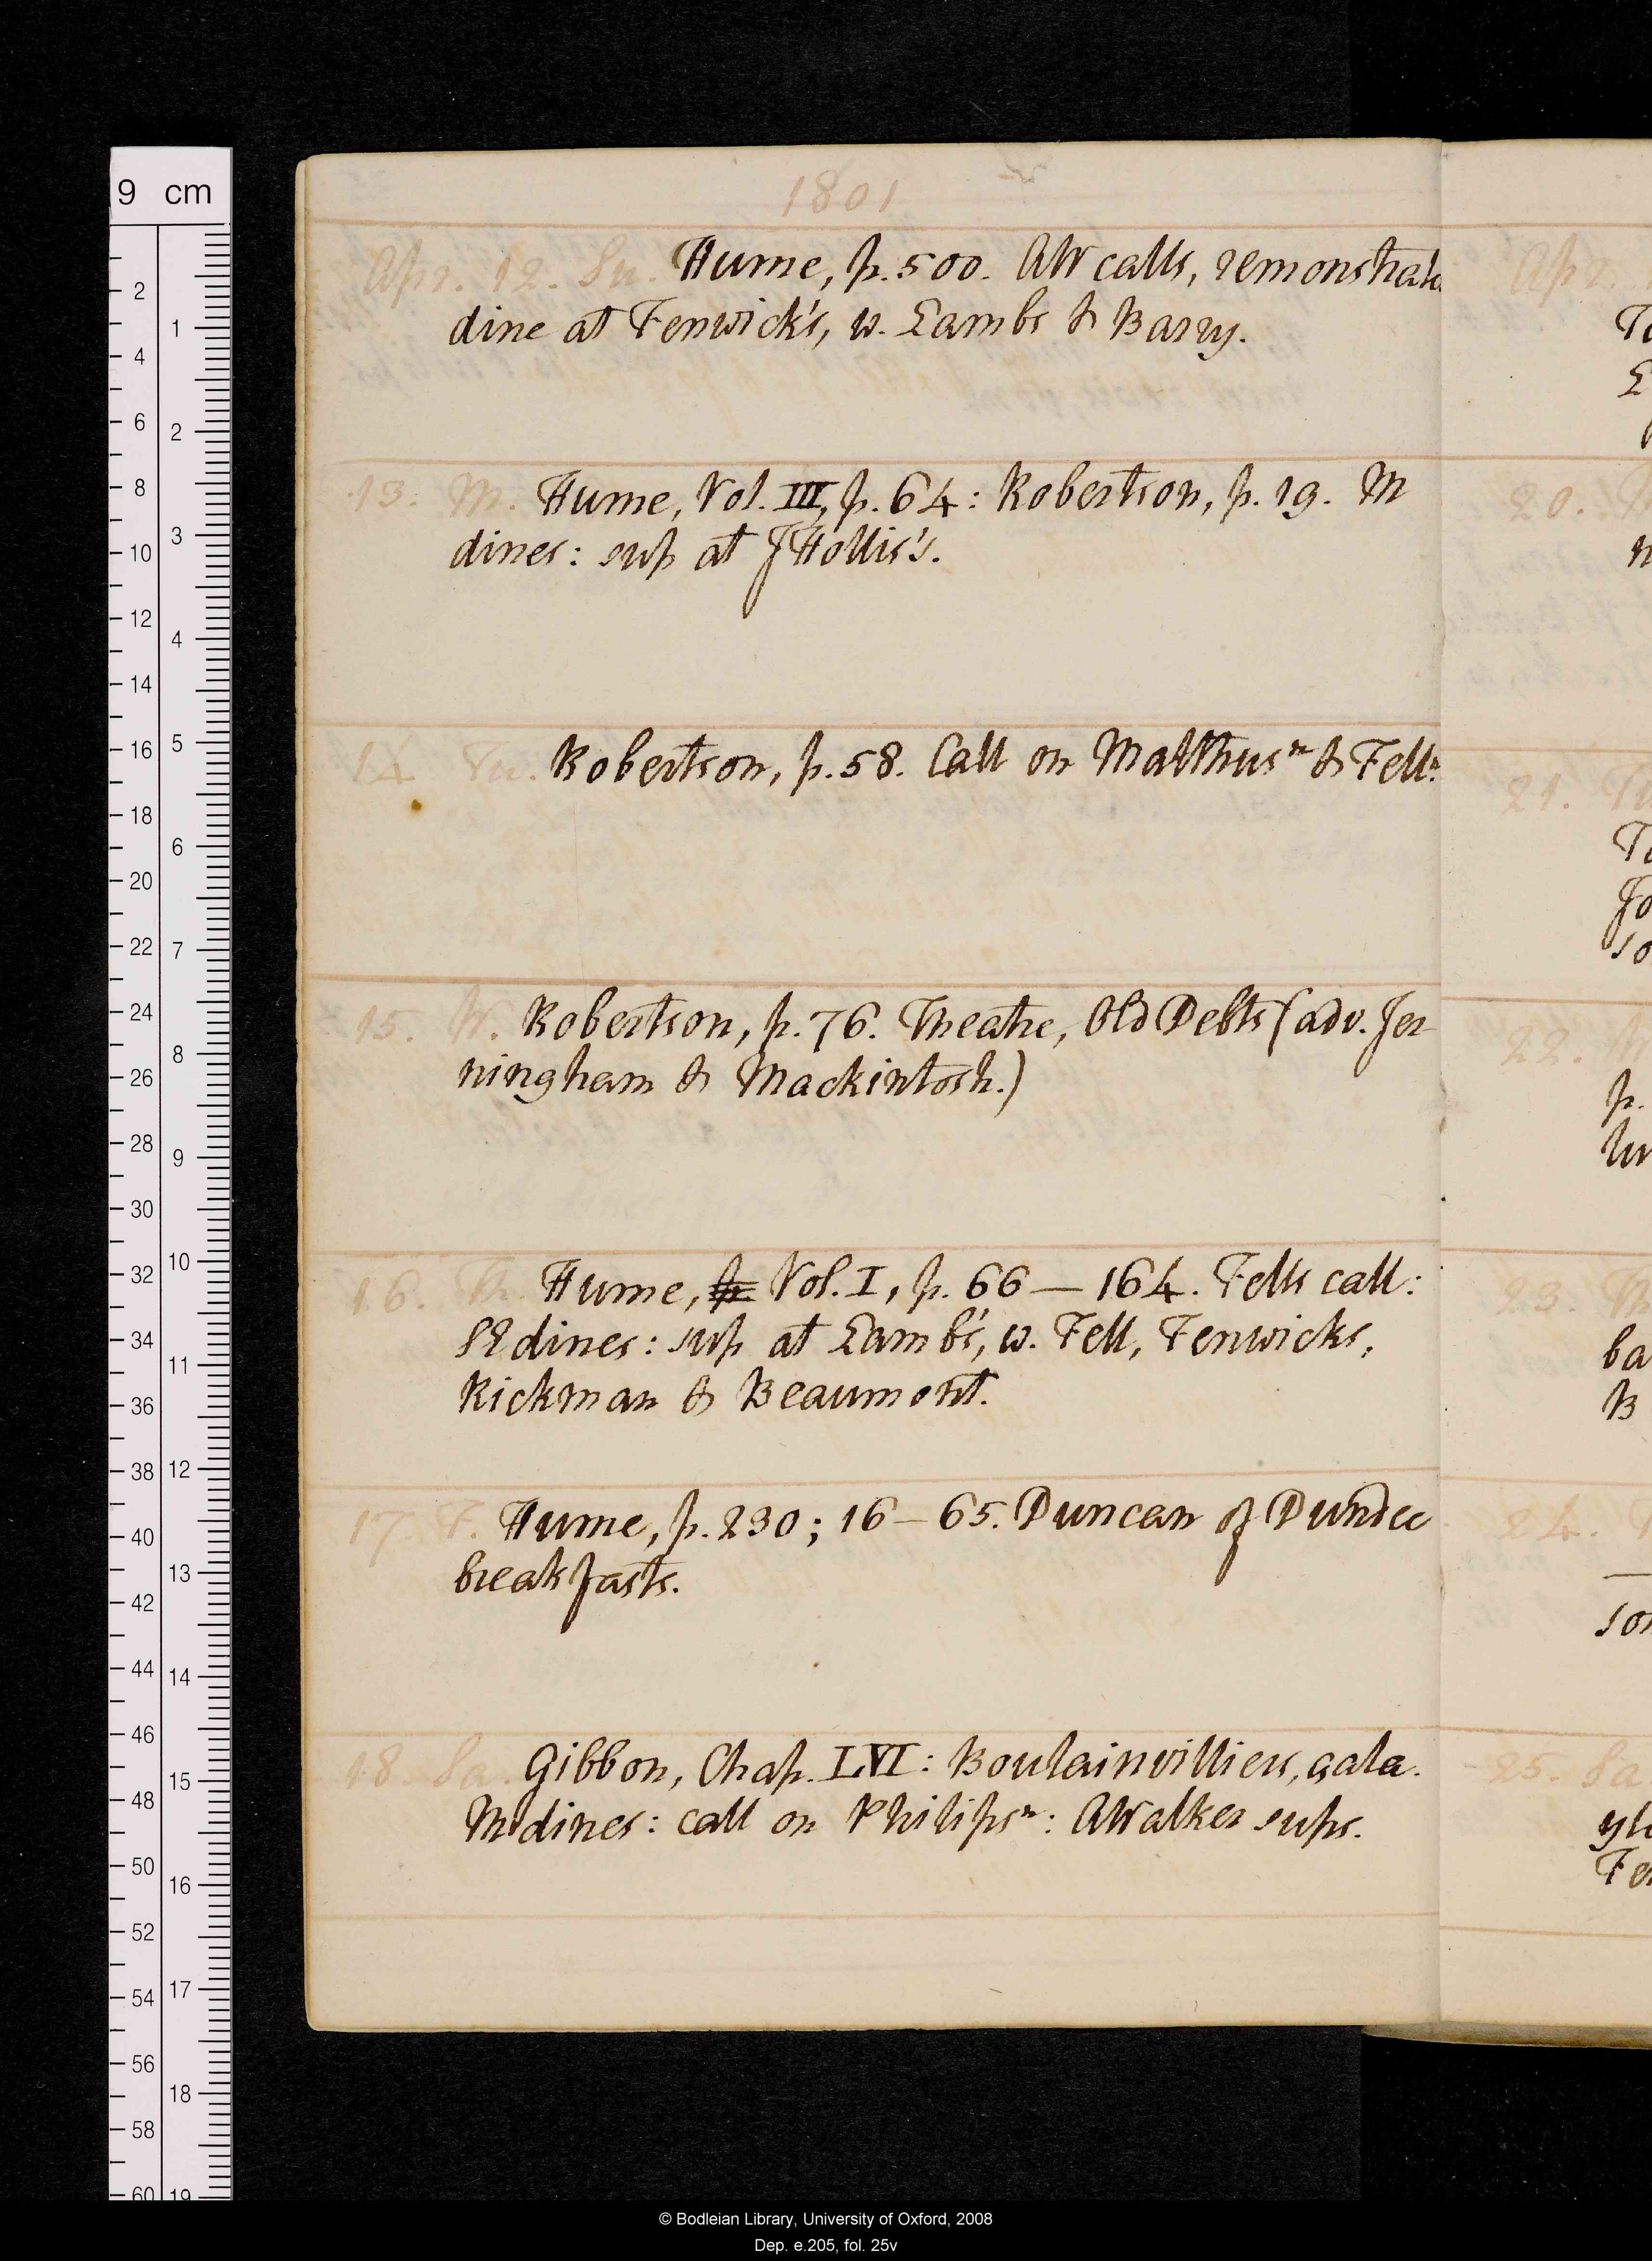 1801
Apr. 12. Su. Hume, p. 500. AW calls, remonstrate
dine at Fenwick's, w. Lambs & Barry.
13. M. Hume, Vol. III, p. 64: Robertson, p. 19. M
dines: sup at J Hollis's.
14 Tu. Robertson, p. 58. Call on Malthus n & Fell n.
15. W. Robertson, p. 76. Theatre, Old Debts (adv. Jer-
ningham & Mackintosh.)
16. Th. Hume, p. Vol. I, p. 66 — 164. Fells call:
SE dines: sup at Lamb's, w. Fell, Fenwicks,
Rickman & Beaumont.
17. F. Hume, p. 230; 16 – 65. Duncan of Dundee
breakfasts.
18. Sa. Gibbon, Chap. LVI: Boulainvilliers, çala.
M dines: call on Philips n: AWalker sups.
Apr.
20.
21. Tu
22.
23.
24.
25. Sa
9 cm
© Bodleian Library, University of Oxford, 2008
Dep. e.205, fol. 25v